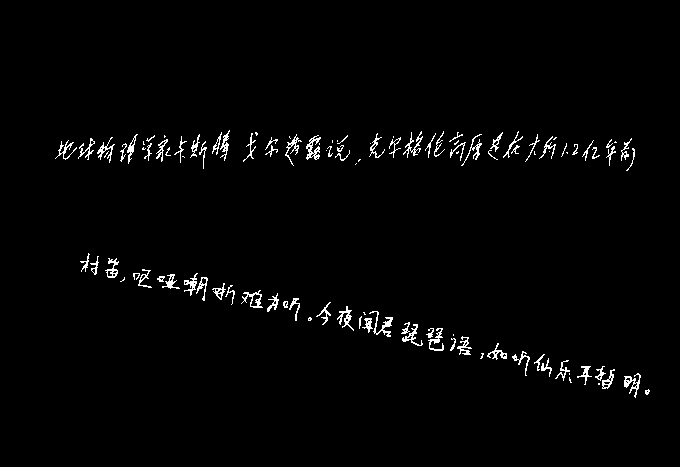 地球物理学家卡斯腾 戈尔透露说,克尔格伦高原是在大约1.2亿年前
村笛,呕哑嘲哳难为听。今夜闻君琵琶语,如听仙乐耳暂明。